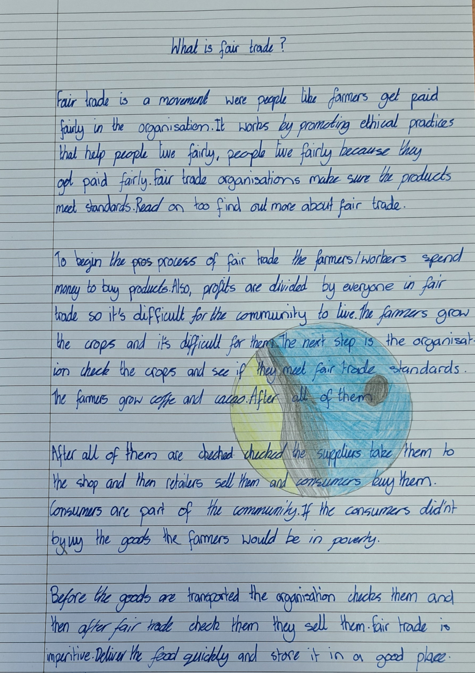 What is fair trade?
Fair trade is a movement were people like farmers get paid
fairly in the organisation. It works by promoting ethical practices
that help people live fairly, people live fairly because they
get paid fairly. Fair trade organisations make sure the products
meet standards. Read on too find out more about fair trade.
To begin the pros process of fair trade the farmers/workers spend
money to buy products. Also, profits are divided by everyone in fair
trade so it's difficult for the community to live. the farmers grow
the crops and it's difficult for them. The next step is the organisat-
ion check the crops and see if they meet fair trade standards.
The farmers grow coffe and cacao. After all of them
After all of them are checked checked the suppliers take them to
the shop and then retailers sell them and consumers buy them.
Consumers are part of the community. If the consumers did'nt
buy the goods the farmers would be in poverty.
Before the goods are transported the organisation checks them and
then after fair trade check them they sell them. fair trade is
imperitive. Deliver the food quickly and store it in a good place.